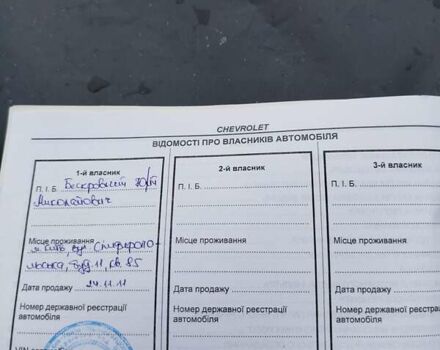 CHEVROLET
ВІДОМОСТІ ПРО ВЛАСНИКІВ АВТОМОБІЛЯ
1-й власник
П. І. Б. Бескровный Юрій
Миколайович
Місце проживання
м. Київ, вул. Сімферопо-
льська, буд 11, кв. 85
Дата продажу 24.11.11
Номер державної реєстрації
автомобіля
2-й власник
П. І. Б.
Місце проживання
Дата продажу
Номер державної реєстрації
автомобіля
3-й власник
П. І. Б.
Місце проживання
Дата продажу
Номер державної
автомобіля